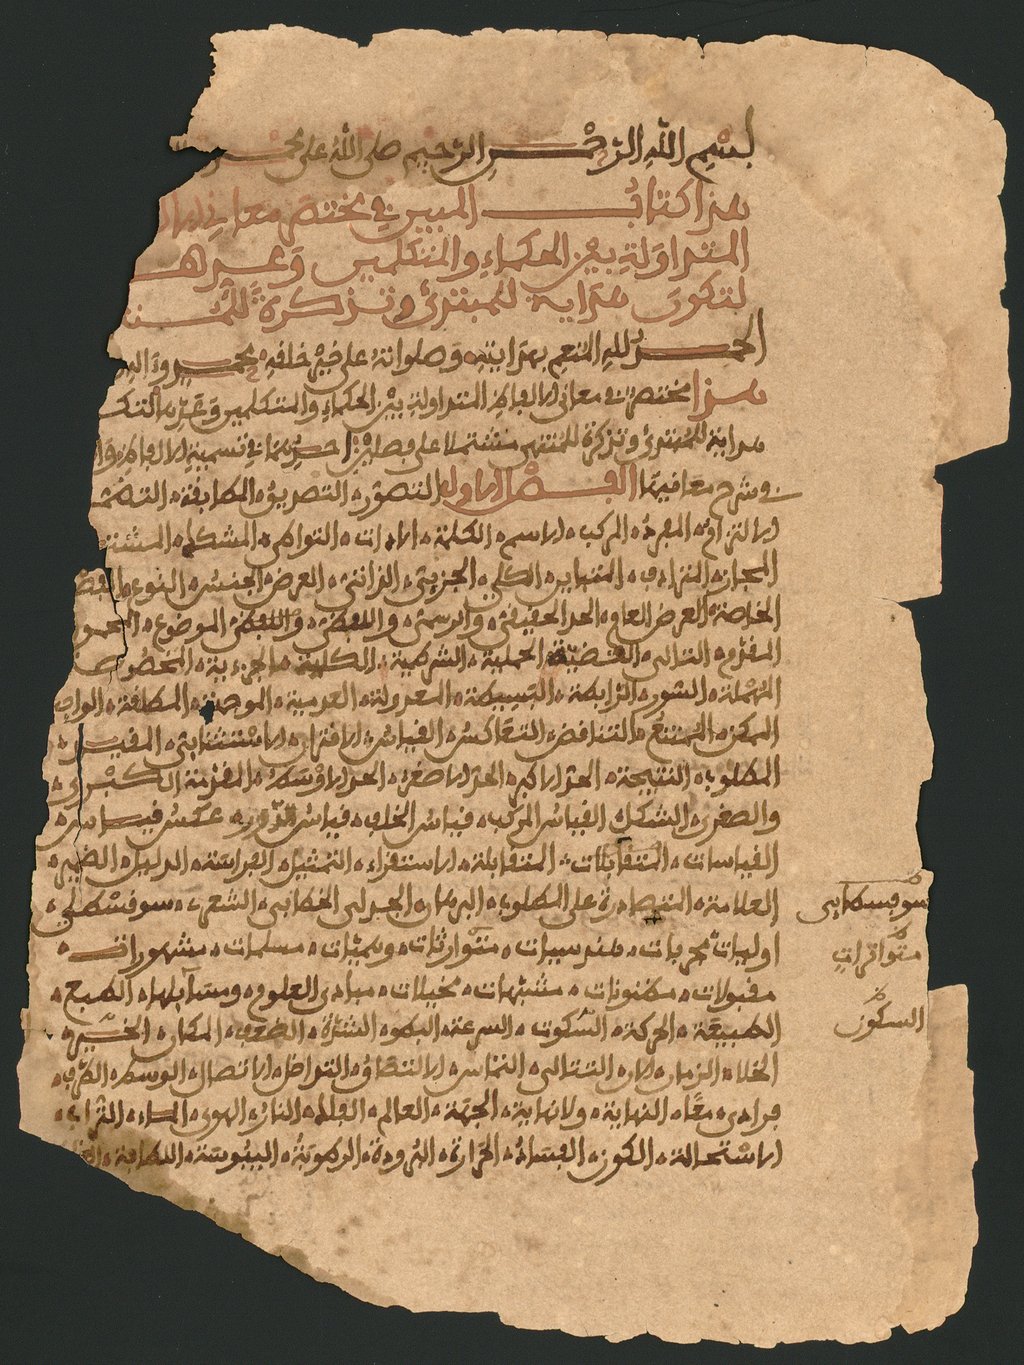 بسم الله الرحمن الرحيم صلى الله على محمد
هذا كتاب المبين في مختصر معاني الالفاظ
المتداولة بين الحكماء والمتكلمين وغيرها
لتكون هداية للمبتدئ وتذكرة للمنتهى
الحمد لله المنعم بهدايته وصلواته على خير خلقه محمد واله
هذا مختصر في معاني الالفاظ المتداولة بين الحكماء والمتكلمين وغيرها لتك
هداية للمبتدئ وتذكرة للمنتهي مشتملا على فصلين احدهما في تسمية الالفاظ
في شرح معانيها الفصل الاول التصور، التصديق، المطابقة، التضمن
الالتزام، المفرد، المركب، الاسم، الكلمة، الادات، التواطى، المشكك، المشتر
المجاز، المترادف، المتباين، الكلي، الجزءى، الذاتي، العرضي، الجنس، النوع، الفصل
الخاصة، العرض العام، الحد الحقيقي، والرسمي، واللفظي، الموضوع، المحمول
المقدم، التالى، القضية، الحملية، الشرطية، الكلية، الجزءية، المخصوص
المهملة، السور، الرابطة، البسيطة، المعدولة، العدمية، الموجهة، المطلقة، الواجب
الممكن، الممتنع، التناقض، التعاكس، القياس، الاقتران، الاستثنايى، المقيس،
المطلوب، النتيجة، الحد الاكبر، الحد الاصغر، الحد الاوسط، المقدمة الكبرى،
والصغرى، الشكل، القياس المركب، قياس الخلف، قياس الدور، عكس قياس،
القياسات، المتقابلات، المتقابلة، الاستقراء، التمثيل، الفراسة، الدليل، الضمير،
العلامة، المصادرة على المطلوب، البرهان، الجدلى، الخطابى، الشعرى، سوفسطايى،
سوفسطايى
اوليات، مجربات، حدسيات، متواترات، وهميات، مسلمات، مشهورات،
متواترات
مقبولات، مظنونات، مشبهات، مخيلات، مبادى العلوم، ومسايلها، الطبع،
الطبيعة، الحركة، السكون، السرعة، البطو، الشدة، الضعف، المكان، الحيز،
السكون
الخلاء، الزمان، الان، التتالى، التماس، الالتصاق، التداخل، الاتصال، الوسط، الطرف،
فرادى، معا، النهاية، ولانهاية، الجهة، العالم، الفلك، النار، الهوى، الماء، التراب،
الاستحالة، الكون، الفساد، الحرارة، البرودة، الرطوبة، اليبوسة، اللطافة،